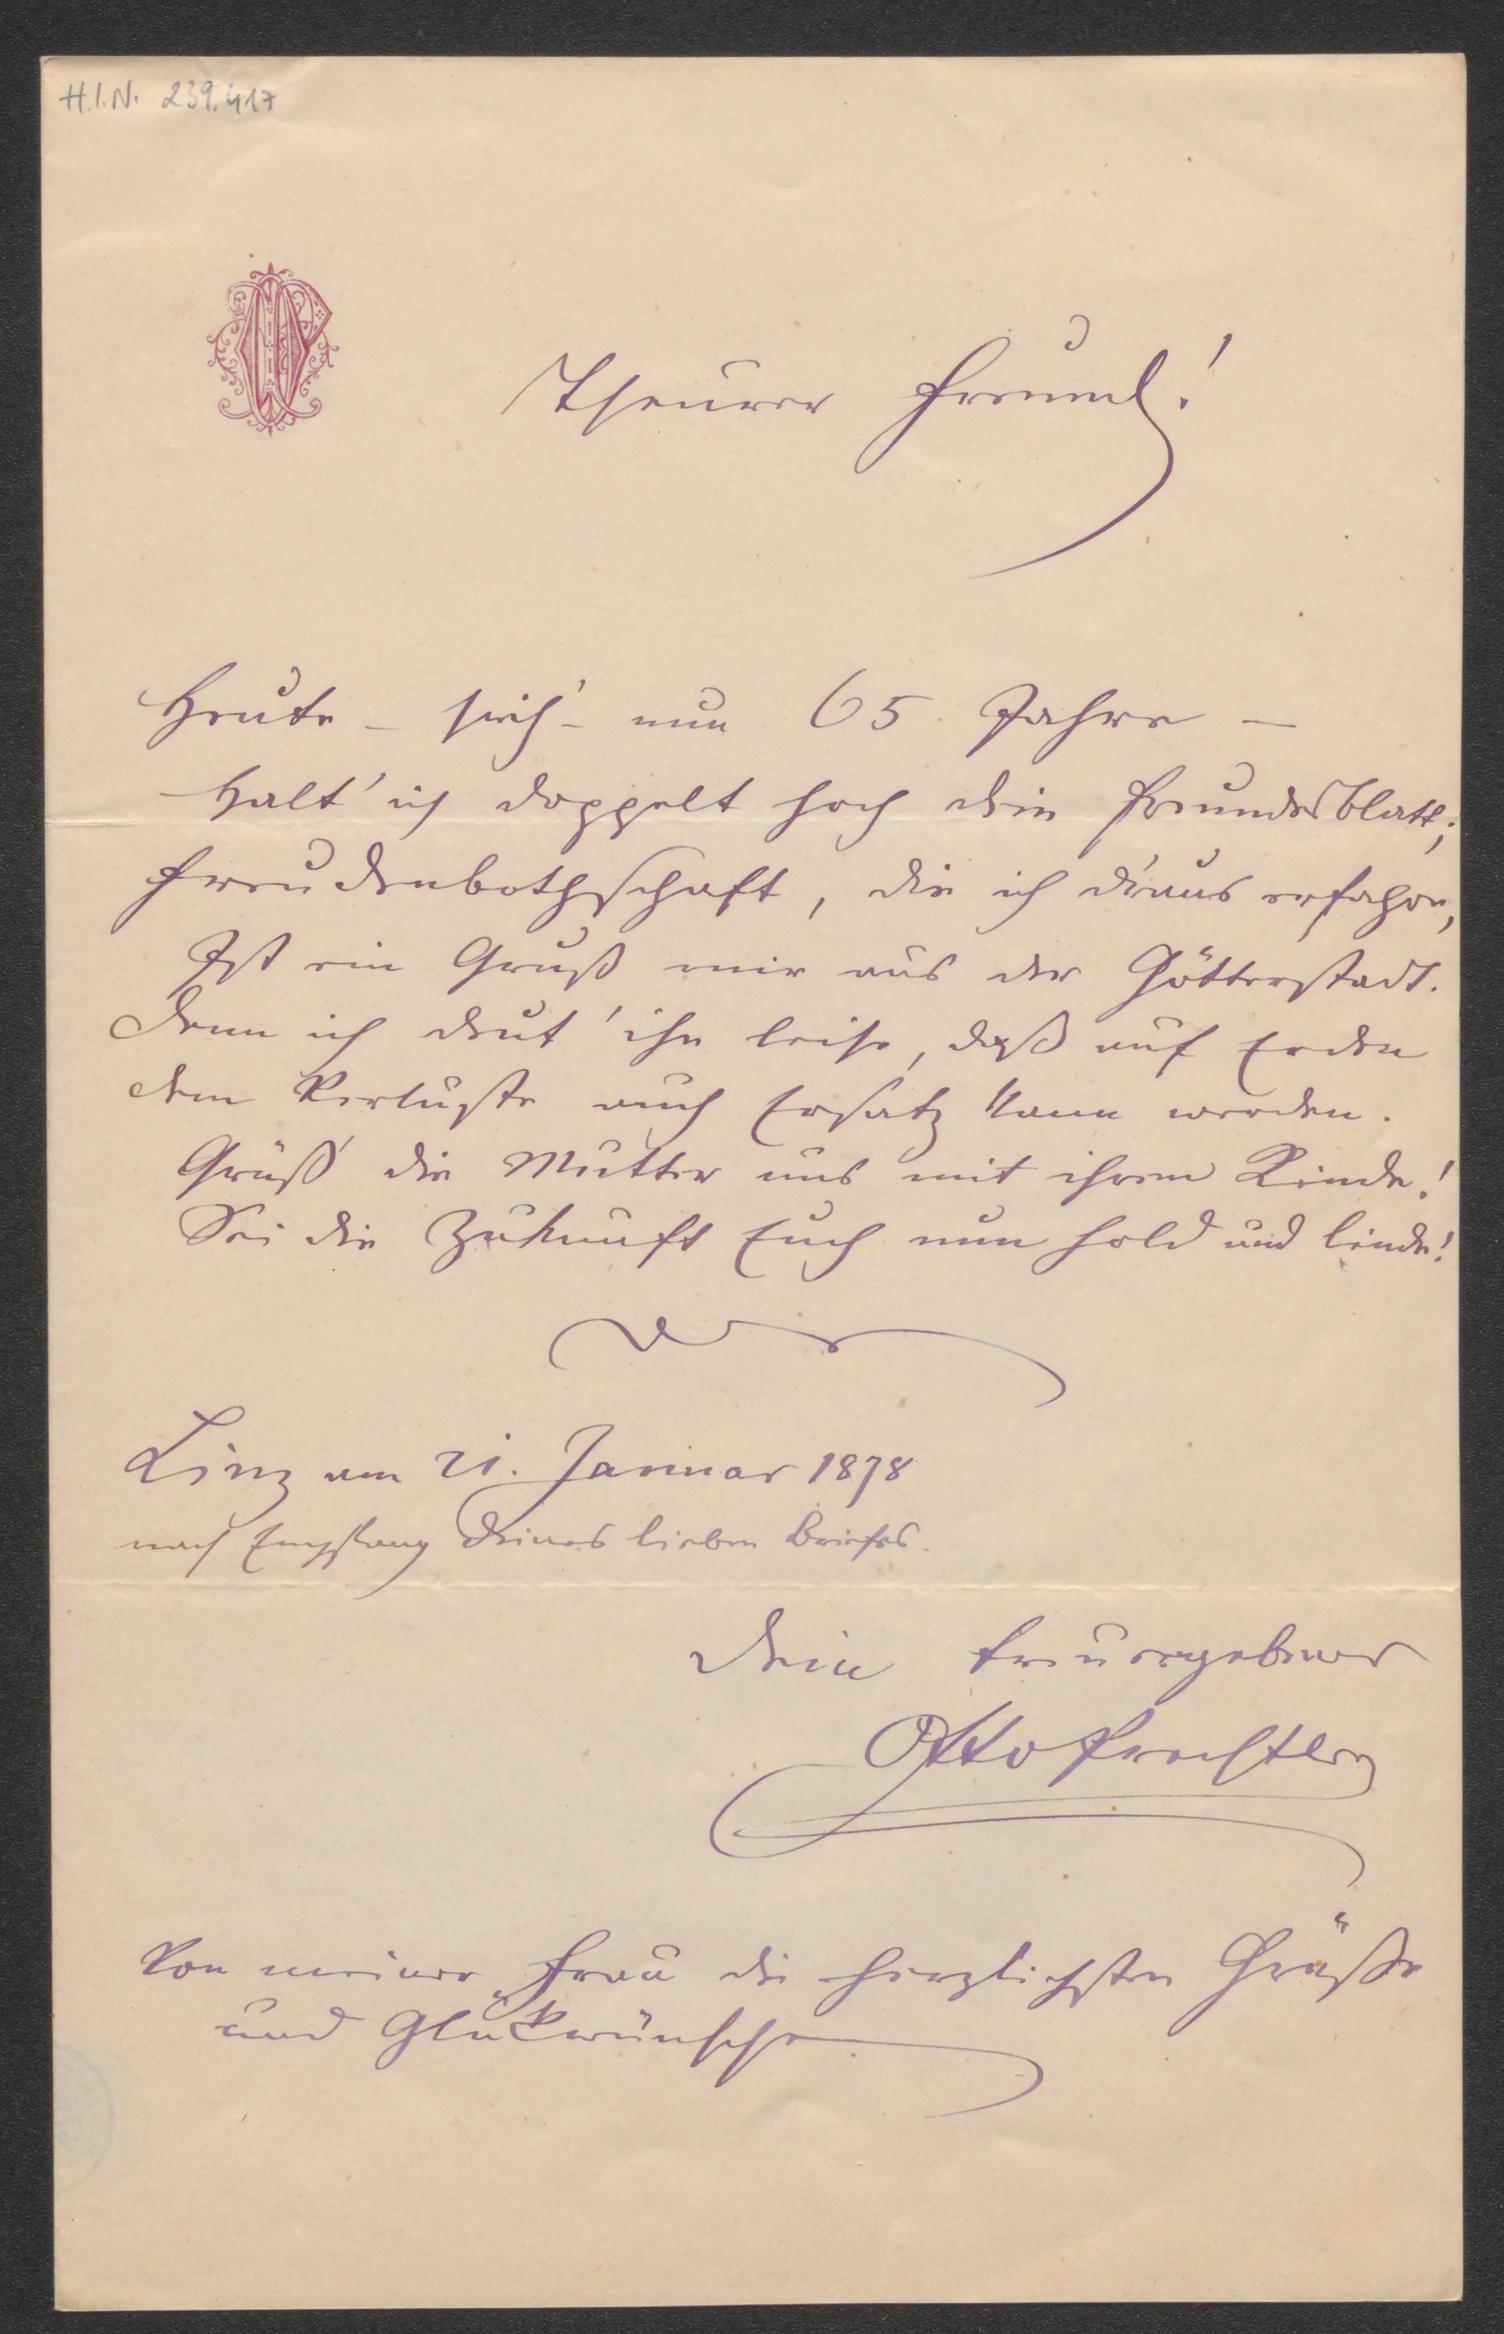 H.I.N. 239.417
Theurer Freund!
Heute – sind's nun 65 Jahre –
Halt' ich doppelt hoch dein Freundesblatt;
Freudenbothschaft, die ich d'raus erfahre,
Ist ein Gruß mir aus der Götterstadt.
Denn ich deut' ihn leise, daß auf Erden
dem Verluste auch Ersatz kann werden.
Grüß' die Mutter uns mit ihrem Kinde!
Sei die Zukunft Euch nun hold und linde!
Linz am 21. Januar 1878
nach Empfang Deines lieben Briefes.
Dein treuergebener
Otto Prechtler
Von meiner Frau die herzlichsten Grüße
und Glückwünsche.